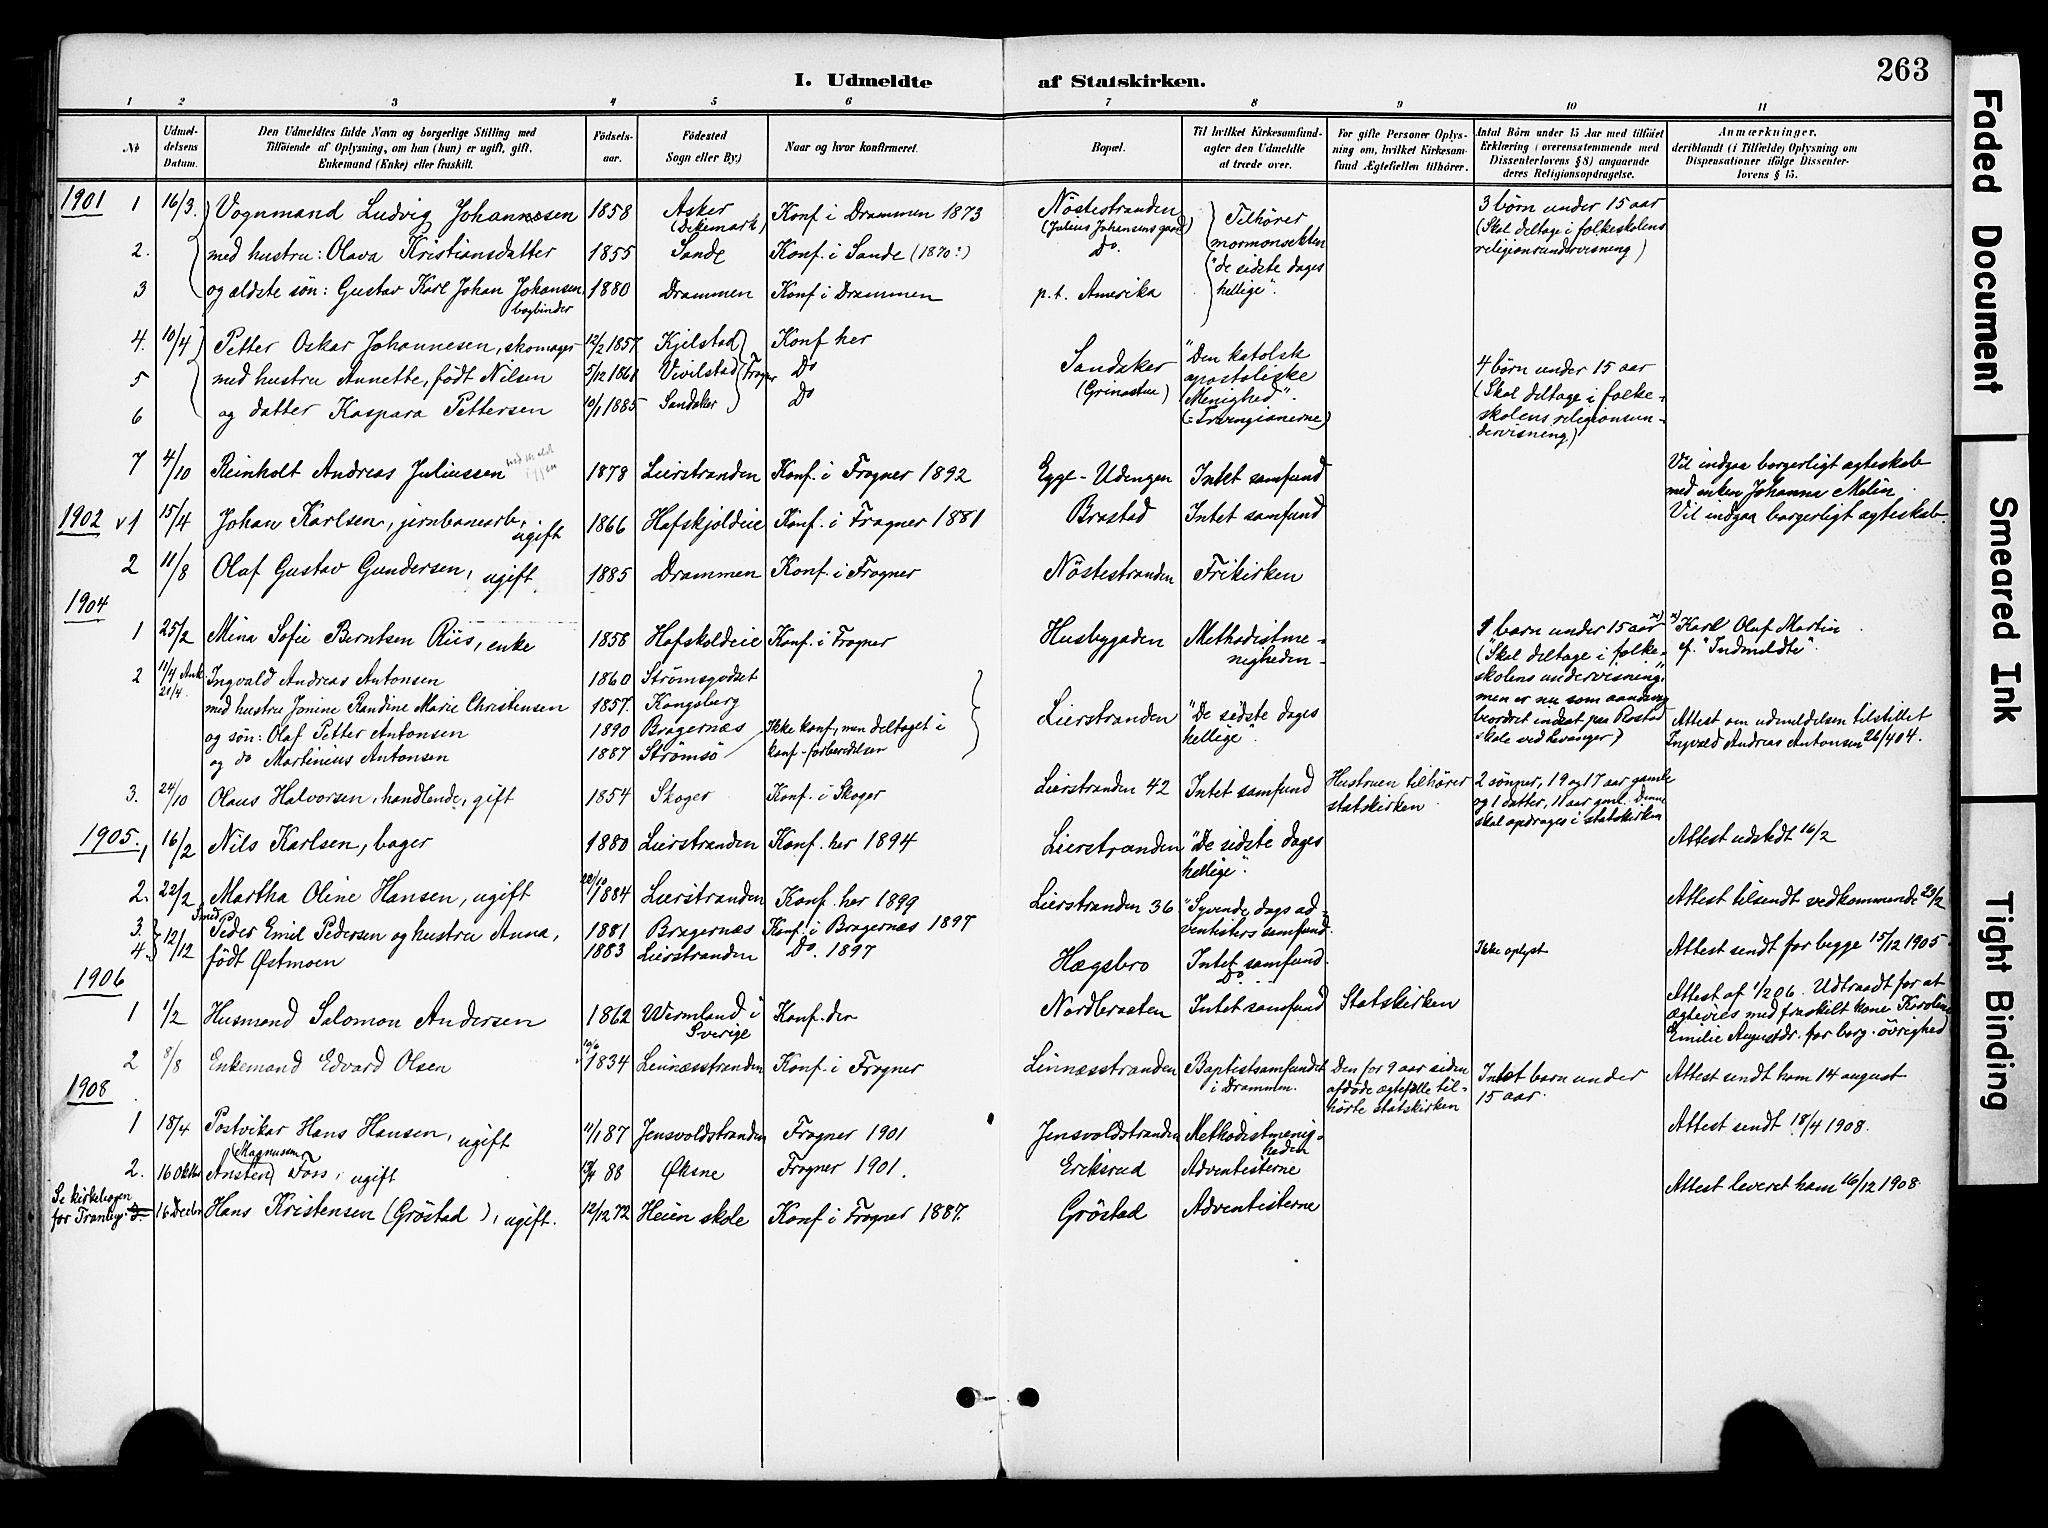 263
I. Udmeldte af Statskirken.
1 2 3 4 5 6 7 8 9 10 11
No
Udmel-
delsens
Datum.
Den Udmeldtes fulde Navn og borgerlige Stilling med
Tilføiende af Oplysning, om han (hun) er ugift, gift,
Enkemand (Enke) eller fraskilt.
Fødsels-
aar.
Fødested
Sogn eller By.)
Naar og hvor konfirmeret.
Bopæl.
Til hvilket Kirkesamfund-
agter den Udmeldte
at træde over.
For gifte Personer Oplys-
ning om, hvilket Kirkesam-
fund Ægtefællen tilhører.
Antal Børn under 15 Aar med tilføiet
Erklæring (overensstemmende med
Dissenterlovens § 8) angaaende
deres Religionsopdragelse.
Anmærkninger,
deriblandt (i Tilfælde) Oplysning om
Dispensationer ifølge Dissenter-
lovens § 15.
1901 1 16/3. Vognmand Ludvig Johannesen 1858 Asker (Dikemark) Konf. i Drammen 1873 Nöstestranden (Julius Johansens gaard)
2. med hustru: Olava Kristiansdatter 1855 Sande Konf. i Sande (1870?) Do.
3 og ældste sön: Gustav Karl Johan Johansen, bogbinder 1880 Drammen Konf i Drammen p.t. Amerika
Tilhører
mormonsekten
"de sidste dages
hellige".
3 börn under 15 aar
(Skal deltage i folkeskolens
religionsundervisning)
4. 10/4 Petter Oskar Johannesen, skomager 12/2 1857 Kjilstad Konf her
5 med hustru Annette, födt Nilsen 5/12 1861 Vivilstad Frogner Do
6 og datter Kaspara Pettersen 10/1 1885 Sandaker Do
Sandaker
"Den katolsk
apostoliske
Menighed".
(= Irvingianerne)
4 börn under 15 aar
(Skal deltage i folke-
skolens religionsun-
dervisning)
7 4/10 Reinholt Andreas Juliussen 1878 Lierstranden Konf. i Frogner 1892 Egge-Udengen Intet samfund
Vil indgaa borgerligt ægteskab
med enken Johanna Melin.
1902 v1 15/4 Johan Karlsen, jernbanearb., ugift 1866 Hafskjoldeie Konf. i Frogner 1881 Brastad Intet samfund Vil indgaa borgerligt ægteskab.
2 11/8 Olaf Gustav Gundersen, ugift 1885 Drammen Konf. i Frogner Nöstestranden Frikirken
1904
1 25/2 Mina Sofie Berntsen Riis, enke 1858 Hafskoldeie Konf. i Frogner Husbygaden Methodistme-
nigheden-
1 barn under 15 aar x)
(Skal deltage i folke-
skolens undervisning,
men er nu som aandssvag
beordret indsat paa Rostad
skole ved Levanger)
x) Karl Olaf Martin
cf. "Indmeldte".
2 11/4 Ank. 21/4. Ingvald Andreas Antonsen 1860 Strömsgodset
med hustru Jonine Randine Marie Christensen 1857. Kongsberg
og sön: Olaf Petter Antonsen 1890 Bragernæs Ikke konf, men deltaget i
og do Martinius Antonsen 1887 Strömsö konf-forberedelsen
Lierstranden
"De sidste dages
hellige".
Attest om udmeldelsen tilstillet
Ingvald Andreas Antonsen 26/4 04.
3. 24/10 Olaus Halvorsen, handlende, gift 1854 Skoger Konf. i Skoger Lierstranden 42 Intet samfund
Hustruen tilhører
statskirken
2 sönner, 19 og 17 aar gamle
og 1 datter, 11 aar gml. Denne
skal opdrages i statskirken
1905. 1 16/2 Nils Karlsen, bager 1880 Lierstranden Konf. her 1894 Lierstranden "De sidste dages
hellige".
Attest udstedt 16/2
2. 22/2 Martha Oline Hansen, ugift 1884 Lierstranden Konf. her 1899 Lierstranden 36 "Syvende dags ad-
ventisters samfund.
Attest tilsendt vedkommende 23/2
3. 12/12 Smed Peder Emil Pedersen og hustru Anna, 1881 Bragernæs Konf. i Bragernæs 1897
4. födt Østmoen 1883 Lierstranden Do. 1897 Hægsbro Intet samfund.
Do
Ikke oplyst
Attest sendt for begge 15/12 1905.
1906
1 1/2 Husmand Salomon Andersen 1862 Wermland i Sverige Konf. der Nordbraaten Intet samfund Statskirken
Attest af 1/2 06. Udtraadt for at
ægtevies med fraskilt kone Karoline
Emilie Augustdr. for borg. övrighed
2 8/8 Enkemand Edvard Olsen 1834 Linnæsstranden Konf. i Frogner Linnæsstranden Baptistsamfundet
i Drammen.
Den for 9 aar siden
afdöde ægtefælle til-
hörte statskirken
Intet barn under
15 aar.
Attest sendt ham 14 august
1908
1 18/4 Postvikar Hans Hansen, ugift 11/1 87 Jensvoldstranden Frogner 1901 Jensvoldstranden Methodistmenig-
heden
Attest sendt 18/4 1908.
2. 16 Oktbr Ansten (Magnusen) Foss, ugift 88 Øksne Frogner 1901. Eriksrud Adventisterne
Se kirkebogen
for Tranby 3. 16 Decbr Hans Kristensen (Gröstad), ugift. 12/12 72 Heien skole Konf i Frogner 1887. Gröstad Adventisterne
Attest leveret ham 16/12 1908.
Faded Document
Smeared Ink
Tight Binding